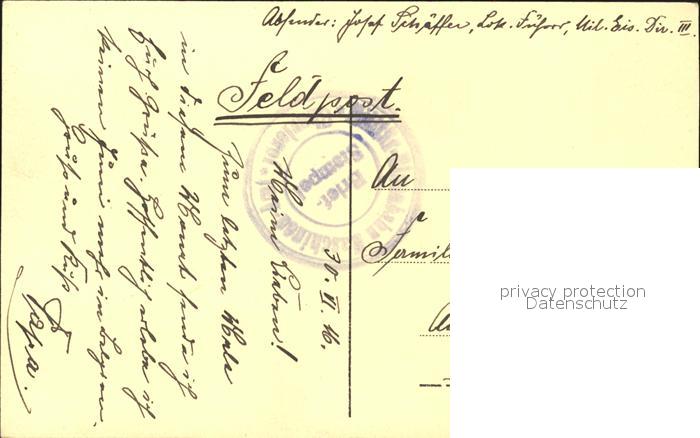 Absender: Josef Schäffer, Lok. Führer, Mil. Eis. Dir. III.
Feldpost.
An
Familie
30. VI. 16.
Meine Lieben!
Zum letzten Male
in diesem Monat sende ich
Euch Grüße. Hoffentlich erlebe ich
keinen Juni mehr in Belgien.
Gruß und Kuß
Papa.
Brief-
Stempel
privacy protection
Datenschutz